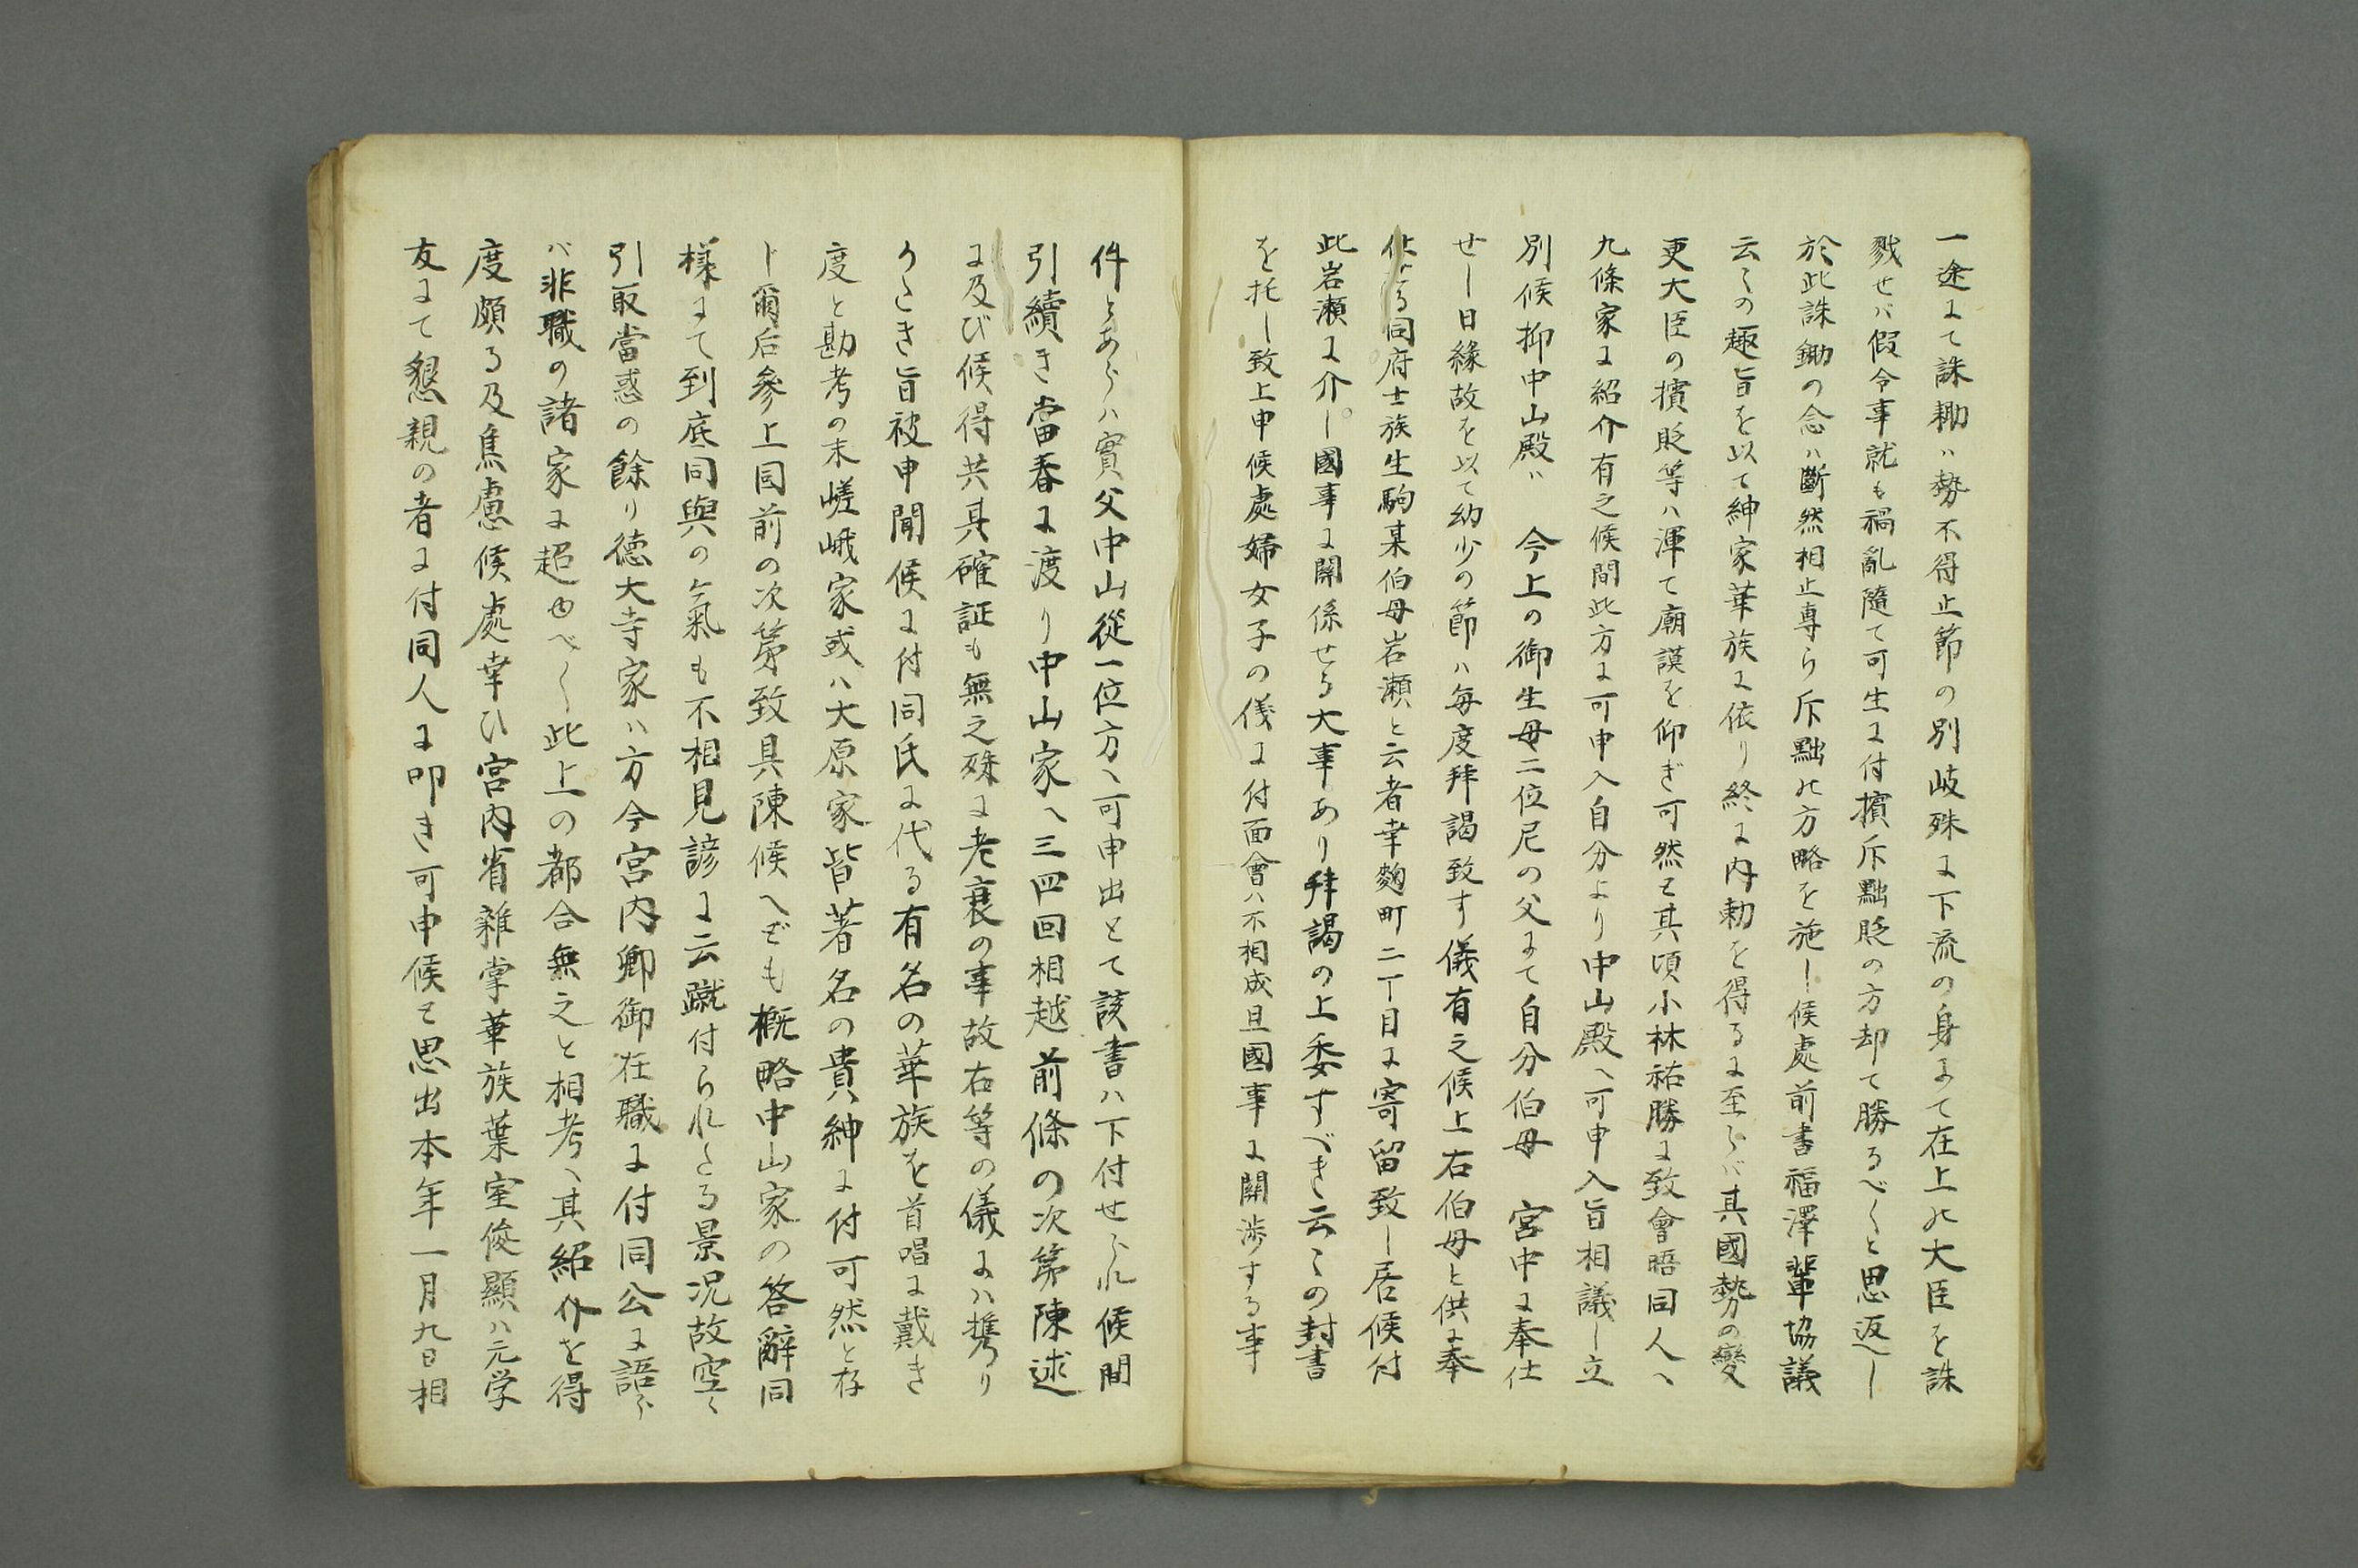 一途にて誅耡ハ勢不得止節の別岐殊に下流の身にて在上の大臣を誅
戮せバ假令事就も禍亂隨て可生に付擯斥黜貶の方却て勝るべくと思返し
於此誅鋤の念ハ斷然相止専ら斥黜の方略を施し候處前書福澤輩協議
云々の趣旨を以て紳家華族に依り終に内勅を得るに至らバ其國勢の變
更大臣の擯貶等ハ渾て廟謨を仰ぎ可然と其頃小林祐勝に致會晤同人へ
九條家に紹介有之候間此方に可申入自分より中山殿へ可申入旨相議し立
別候抑中山殿ハ 今上の御生母二位尼の父にて自分伯母 宮中に奉仕
せし日縁故を以て幼少の節ハ毎度拜謁致す儀有之候上右伯母と供に奉
仕せる同府士族生駒某伯母岩瀬と云者幸麹町二丁目に寄留致し居候付
此岩瀬に介し國事に關係せる大事あり拜謁の上委すべき云々の封書
を托し致上申候處婦女子の儀に付面會ハ不相成旦國事に關渉する事
件とあらハ實父中山從一位方へ可申出とて該書ハ下付せられ候間
引續き當春に渡り中山家へ三四回相越前條の次第陳述
に及び候得共其確証も無之殊に老衰の事故右等の儀にハ携り
うたき旨被申聞候に付同氏に代る有名の華族を首唱に戴き
度と勘考の末嵯峨家或ハ大原家皆著名の貴紳に付可然と存
ト爾后參上同前の次第致具陳候へども概略中山家の答辭同
様にて到底同與の氣も不相見諺に云蹴付られたる景况故空く
引取當惑の餘り徳大寺家ハ方今宮内卿御在職に付同公に語ら
バ非職の諸家に超ゆべく此上の都合無之と相考へ其紹介を得
度頗る及焦慮候處幸ひ宮内省雜掌華族葉室俊顯ハ元学
友にて懇親の者に付同人に叩き可申候と思出本年一月九日相